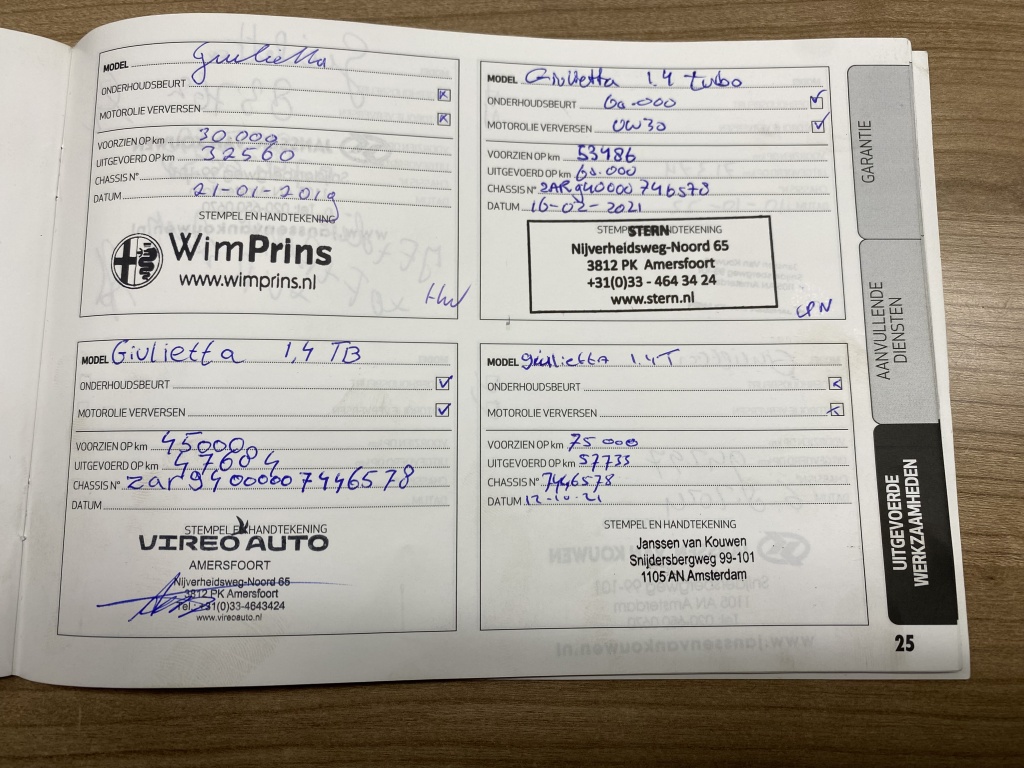 MODEL Giulietta
ONDERHOUDSBEURT
MOTOROLIE VERVERSEN
VOORZIEN OP km 30.000
UITGEVOERD OP km 32560
CHASSIS N°
DATUM 21-01-2019
STEMPEL EN HANDTEKENING
WimPrins
www.wimprins.nl
MODEL Giulietta 1.4 turbo
ONDERHOUDSBEURT 60.000
MOTOROLIE VERVERSEN 0W30
VOORZIEN OP km 53486
UITGEVOERD OP km 60.000
CHASSIS N° ZAR940000 746578
DATUM 16-02-2021
STEMPEL EN HANDTEKENING
STERN
Nijverheidsweg-Noord 65
3812 PK Amersfoort
+31(0)33 - 464 34 24
www.stern.nl
MODEL Giulietta 1,4 TB
ONDERHOUDSBEURT
MOTOROLIE VERVERSEN
VOORZIEN OP km 45000
UITGEVOERD OP km 47684
CHASSIS N° zar94000007446578
DATUM
STEMPEL EN HANDTEKENING
VIREO AUTO
AMERSFOORT
Nijverheidsweg-Noord 65
3812 PK Amersfoort
Tel. +31(0)33-4643424
www.vireoauto.nl
MODEL giulietta 1.4T
ONDERHOUDSBEURT
MOTOROLIE VERVERSEN
VOORZIEN OP km 75000
UITGEVOERD OP km 57735
CHASSIS N° 7446578
DATUM 12-10-21
STEMPEL EN HANDTEKENING
Janssen van Kouwen
Snijdersbergweg 99-101
1105 AN Amsterdam
GARANTIE
AANVULLENDE
DIENSTEN
UITGEVOERDE
WERKZAAMHEDEN
25